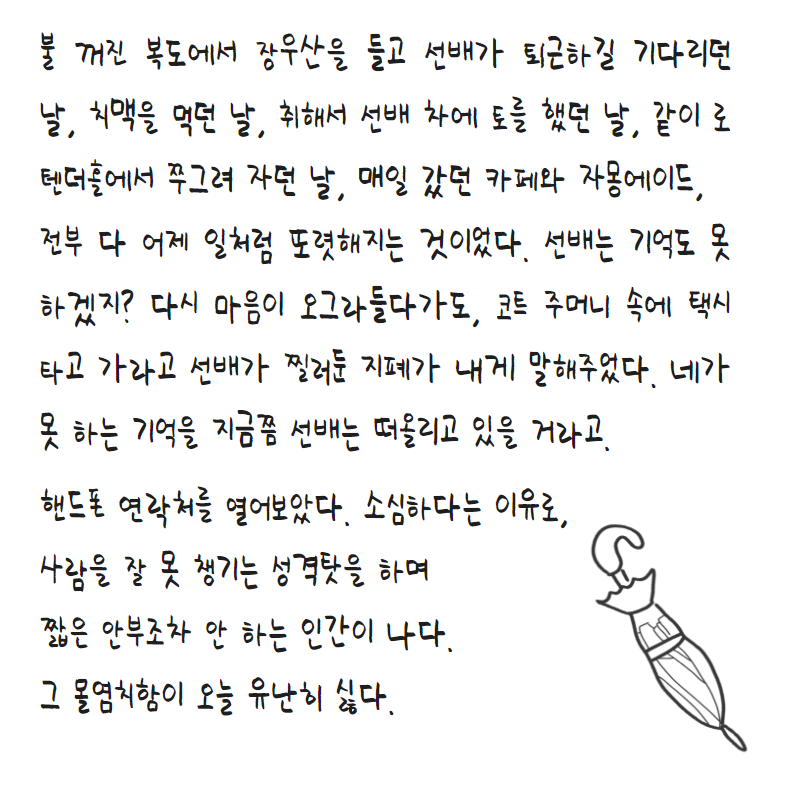 불 꺼진 복도에서 장우산을 들고 선배가 퇴근하길 기다리던
날, 치맥을 먹던 날, 취해서 선배 차에 토를 했던 날, 같이 로
텐더홀에서 쭈그려 자던 날, 매일 갔던 카페와 자몽에이드,
전부 다 어제 일처럼 또렷해지는 것이었다. 선배는 기억도 못
하겠지? 다시 마음이 오그라들다가도, 코트 주머니 속에 택시
타고 가라고 선배가 찔러둔 지폐가 내게 말해주었다. 네가
못 하는 기억을 지금쯤 선배는 떠올리고 있을 거라고.
핸드폰 연락처를 열어보았다. 소심하다는 이유로,
사람을 잘 못 챙기는 성격탓을 하며
짧은 안부조차 안 하는 인간이 나다.
그 몰염치함이 오늘 유난히 싫다.